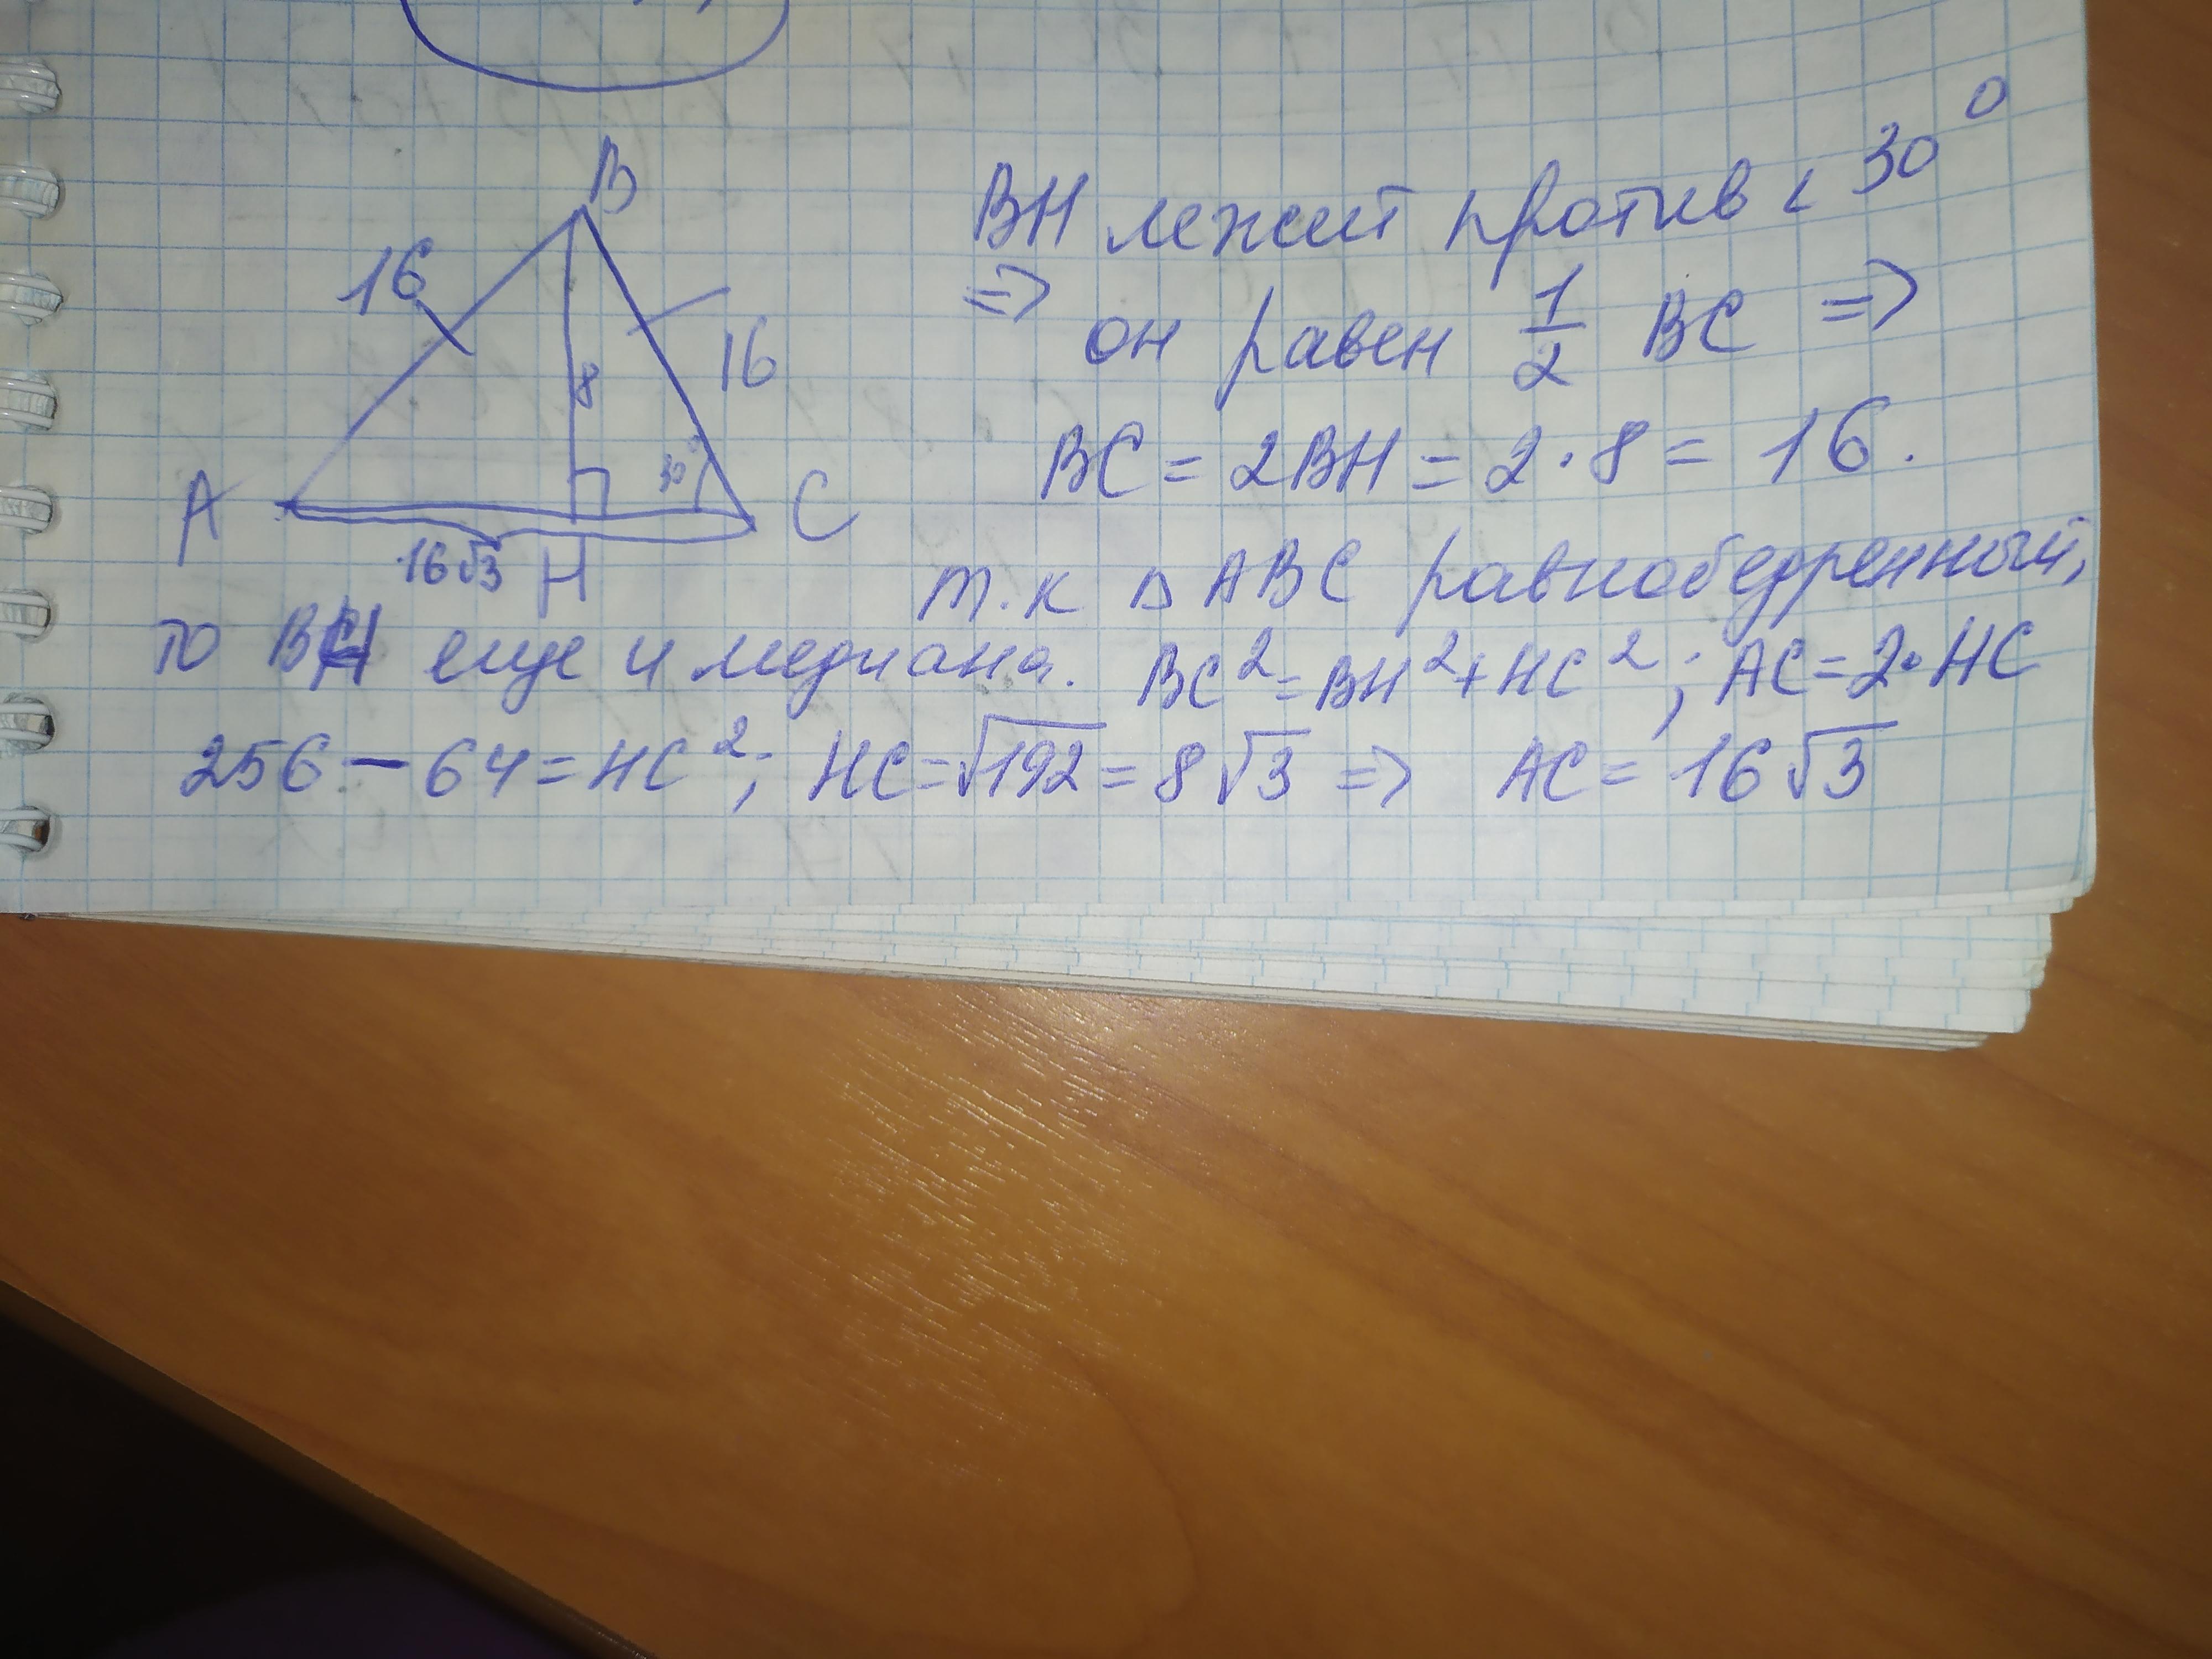 B
16
16
8
30°
A
C
16√3
H
BH лежит против < 30°
=> он равен 1/2 BC =>
BC = 2BH = 2·8 = 16.
т.к △ ABC равнобедренный,
то BH еще и медиана. BC² = BH² + HC²; AC = 2·HC
256 − 64 = HC²; HC = √192 = 8√3 => AC = 16√3